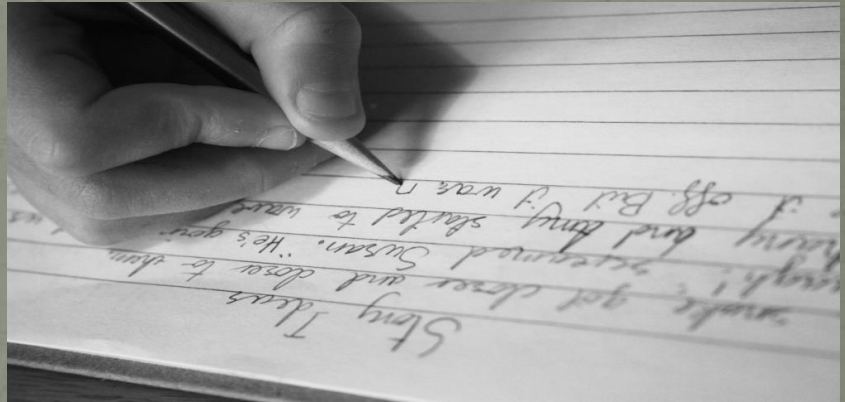 Story Ideas
snake got closer and closer to them
screamed Susan. "He's goin
and Amy started to wave
it off. But it was n